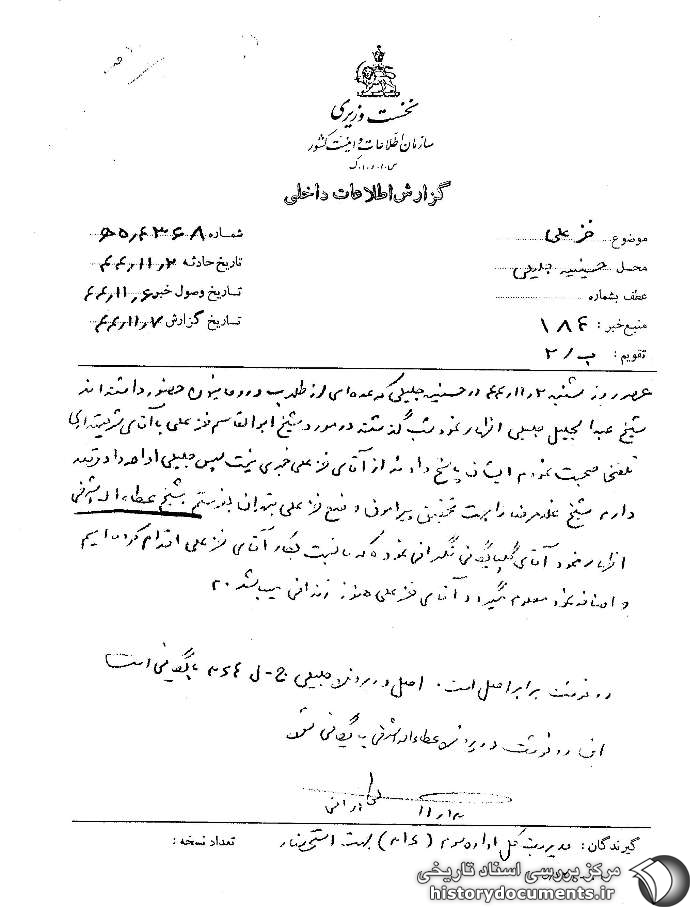 نخست وزیری
سازمان اطلاعات و امنیت کشور
س.ا.و.ا.ک
گزارش اطلاعات داخلی
موضوع خزعلی
شماره ۵/۴۳۶۸
محل حسینیه جلیلی
تاریخ حادثه ۴۴/۱۱/۲
عطف بشماره
تاریخ وصول خبر ۴۴/۱۱/۶
منبع خبر: ۱۸۴
تاریخ گزارش ۴۴/۱۱/۷
تقویم: ب/۲
عصر روز شنبه ۴۴/۱۱/۲ در حسینیه جلیلی که عده‌ای از طلاب و روحانیون حضور داشته‌اند
شیخ عبدالجلیل جلیلی اظهار نمود شب گذشته در مورد شیخ ابوالقاسم خزعلی با آقای شریعتمداری
تلفنی صحبت نمودم ایشان پاسخ دادند از آقای خزعلی خبری نیست سپس جلیلی ادامه داد و قصد
دارم شیخ غلامرضا را جهت تحقیق پیرامون وضع خزعلی بتهران بفرستم شیخ عطاءاله اشرفی
اظهار نمود آقای گلپایگانی نگرانی نموده که ما نسبت بکار آقای خزعلی اقدام کرده‌ایم
و اضافه نمود معلوم میگردد آقای خزعلی هنوز زندانی میباشد.
رونوشت برابر اصل است. اصل در پرونده جلیلی ج-ل ۴۶ بایگانی است
این رونوشت در پرونده عطاءاله اشرفی بایگانی شود
۱۱
گیرندگان: مدیریت کل اداره سوم (۳۱۶) جهت استحضار
تعداد نسخه:
مرکز بررسی اسناد تاریخی
historydocuments.ir